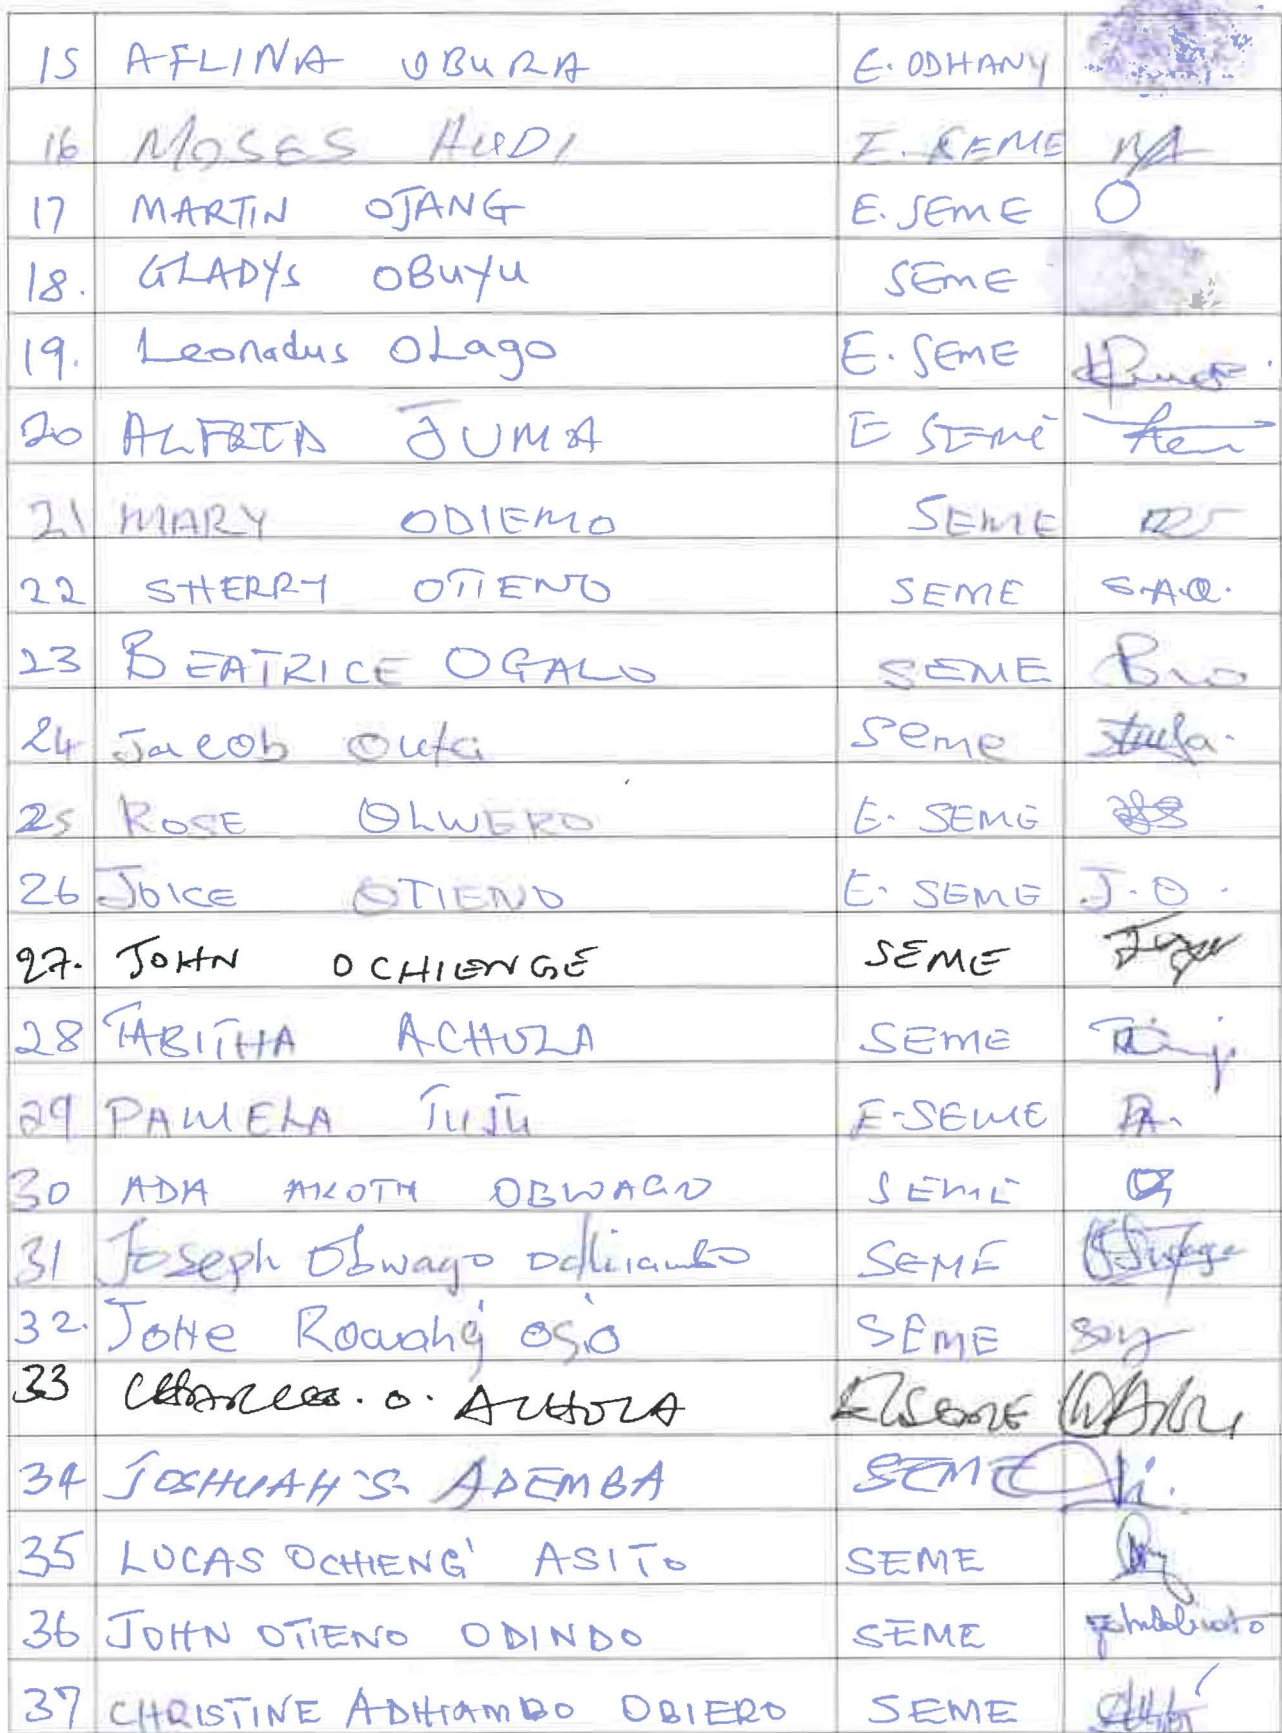 15 AFLINA OBURA E. ODHANY
16 MOSES AUDI E. SEME
17 MARTIN OJANG E. SEME O
18. GLADYS OBUYU SEME
19. Leonadus OLago E. SEME
20 ALFRED JUMA E SEME
21 MARY ODIEMO SEME
22 SHERRY OTIENO SEME S.A.O.
23 BEATRICE OGALO SEME
24 Jacob Outa Seme
25 ROSE OLWERO E. SEME
26 JOICE OTIENO E. SEME J.O.
27. JOHN OCHIENGE SEME
28 TABITHA ACHOLA SEME
29 PAMELA TUJU E-SEME PA.
30 ADA AKOTH OBWAGO SEME
31 Joseph Obwago Odhiambo SEME
32. JOHe SEME
33 CHARLES. O. ACHOLA E/SEME
34 JOSHUAH'S ADEMBA SEME
35 LUCAS OCHIENG' ASITO SEME
36 JOHN OTIENO ODINDO SEME
37 CHRISTINE ADHIAMBO OBIERO SEME